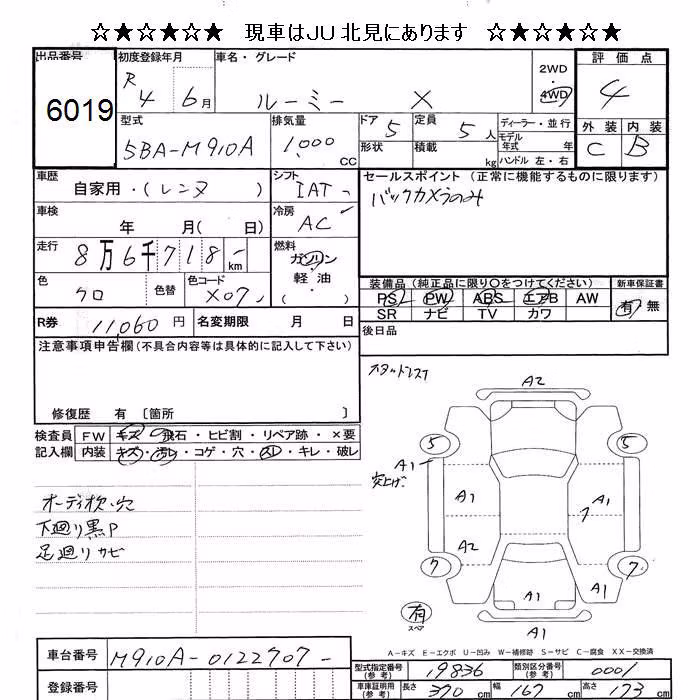 ☆★☆★☆★ 現車はJU北見にあります ☆★☆★☆★
出品番号 初度登録年月 車名・グレード 2WD 評価点
6019 R 4 6月 ルーミー X 4WD 4
型式 排気量 ドア 定員 ディーラー・並行 外装 内装
5BA-M910A 1,000 CC 5 5人 モデル年式 年 C B
形状 積載 kg ハンドル 左・右
車歴 シフト セールスポイント (正常に機能するものに限ります)
自家用・(レンタ) IAT バックカメラのみ
車検 冷房
年 月( 日) AC
走行 燃料
8万6千718 km ガソリン
軽油
・( )
色 色替 色コード 装備品 (純正品に限り○をつけてください) 新車保証書
クロ X07 PS PW ABS エアB AW 有 無
SR ナビ TV カワ
R券 11,060円 名変期限 月 日 後日品
注意事項申告欄(不具合内容等は具体的に記入して下さい)
修復歴 有 〔箇所 〕
検査員 FW キズ・飛石・ヒビ割・リペア跡・×要
記入欄 内装 キズ・汚レ・コゲ・穴・スレ・キレ・破レ
オーディオ枕・穴
下廻り黒P
足廻りサビ
スタッドレス
A2
5 5
A1
A1 A1
A2 7
7 7
A1 A1
有
スペア
A1
A-キズ E-エクボ U-凹み W-補修跡 S-サビ C-腐食 XX-交換済
車台番号 M910A-0122707
登録番号
型式指定番号(参考) 19836 類別区分番号(参考) 0001
車庫証明用(参考) 長さ 370cm 幅 167cm 高さ 173cm